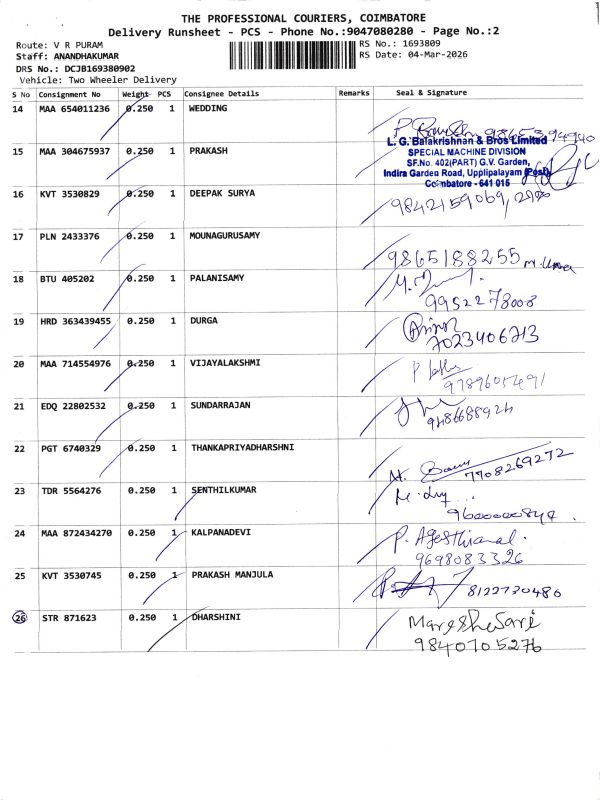 THE PROFESSIONAL COURIERS, COIMBATORE
Delivery Runsheet - PCS - Phone No.:9047080280 - Page No.:2
Route: V R PURAM
RS No.: 1693809
Staff: ANANDHAKUMAR
RS Date: 04-Mar-2026
DRS No.: DCJB169380902
Vehicle: Two Wheeler Delivery
S No Consignment No Weight PCS Consignee Details Remarks Seal & Signature
14 MAA 654011236 0.250 1 WEDDING
L. G. Balakrishnan & Bros Limited
15 MAA 304675937 0.250 1 PRAKASH
SPECIAL MACHINE DIVISION
SF.No. 402(PART) G.V. Garden,
Indira Garden Road, Upplipalayam (Post)
Coimbatore - 641 015
16 KVT 3530829 0.250 1 DEEPAK SURYA
9842159069,
17 PLN 2433376 0.250 1 MOUNAGURUSAMY
9865188255
18 BTU 405202 0.250 1 PALANISAMY
9952278008
19 HRD 363439455 0.250 1 DURGA
7023406213
20 MAA 714554976 0.250 1 VIJAYALAKSHMI
21 EDQ 22802532 0.250 1 SUNDARRAJAN
22 PGT 6740329 0.250 1 THANKAPRIYADHARSHNI
7708269272
23 TDR 5564276 0.250 1 SENTHILKUMAR
24 MAA 872434270 0.250 1 KALPANADEVI
9698083326
25 KVT 3530745 0.250 1 PRAKASH MANJULA
8122730486
26 STR 871623 0.250 1 DHARSHINI
9840705276